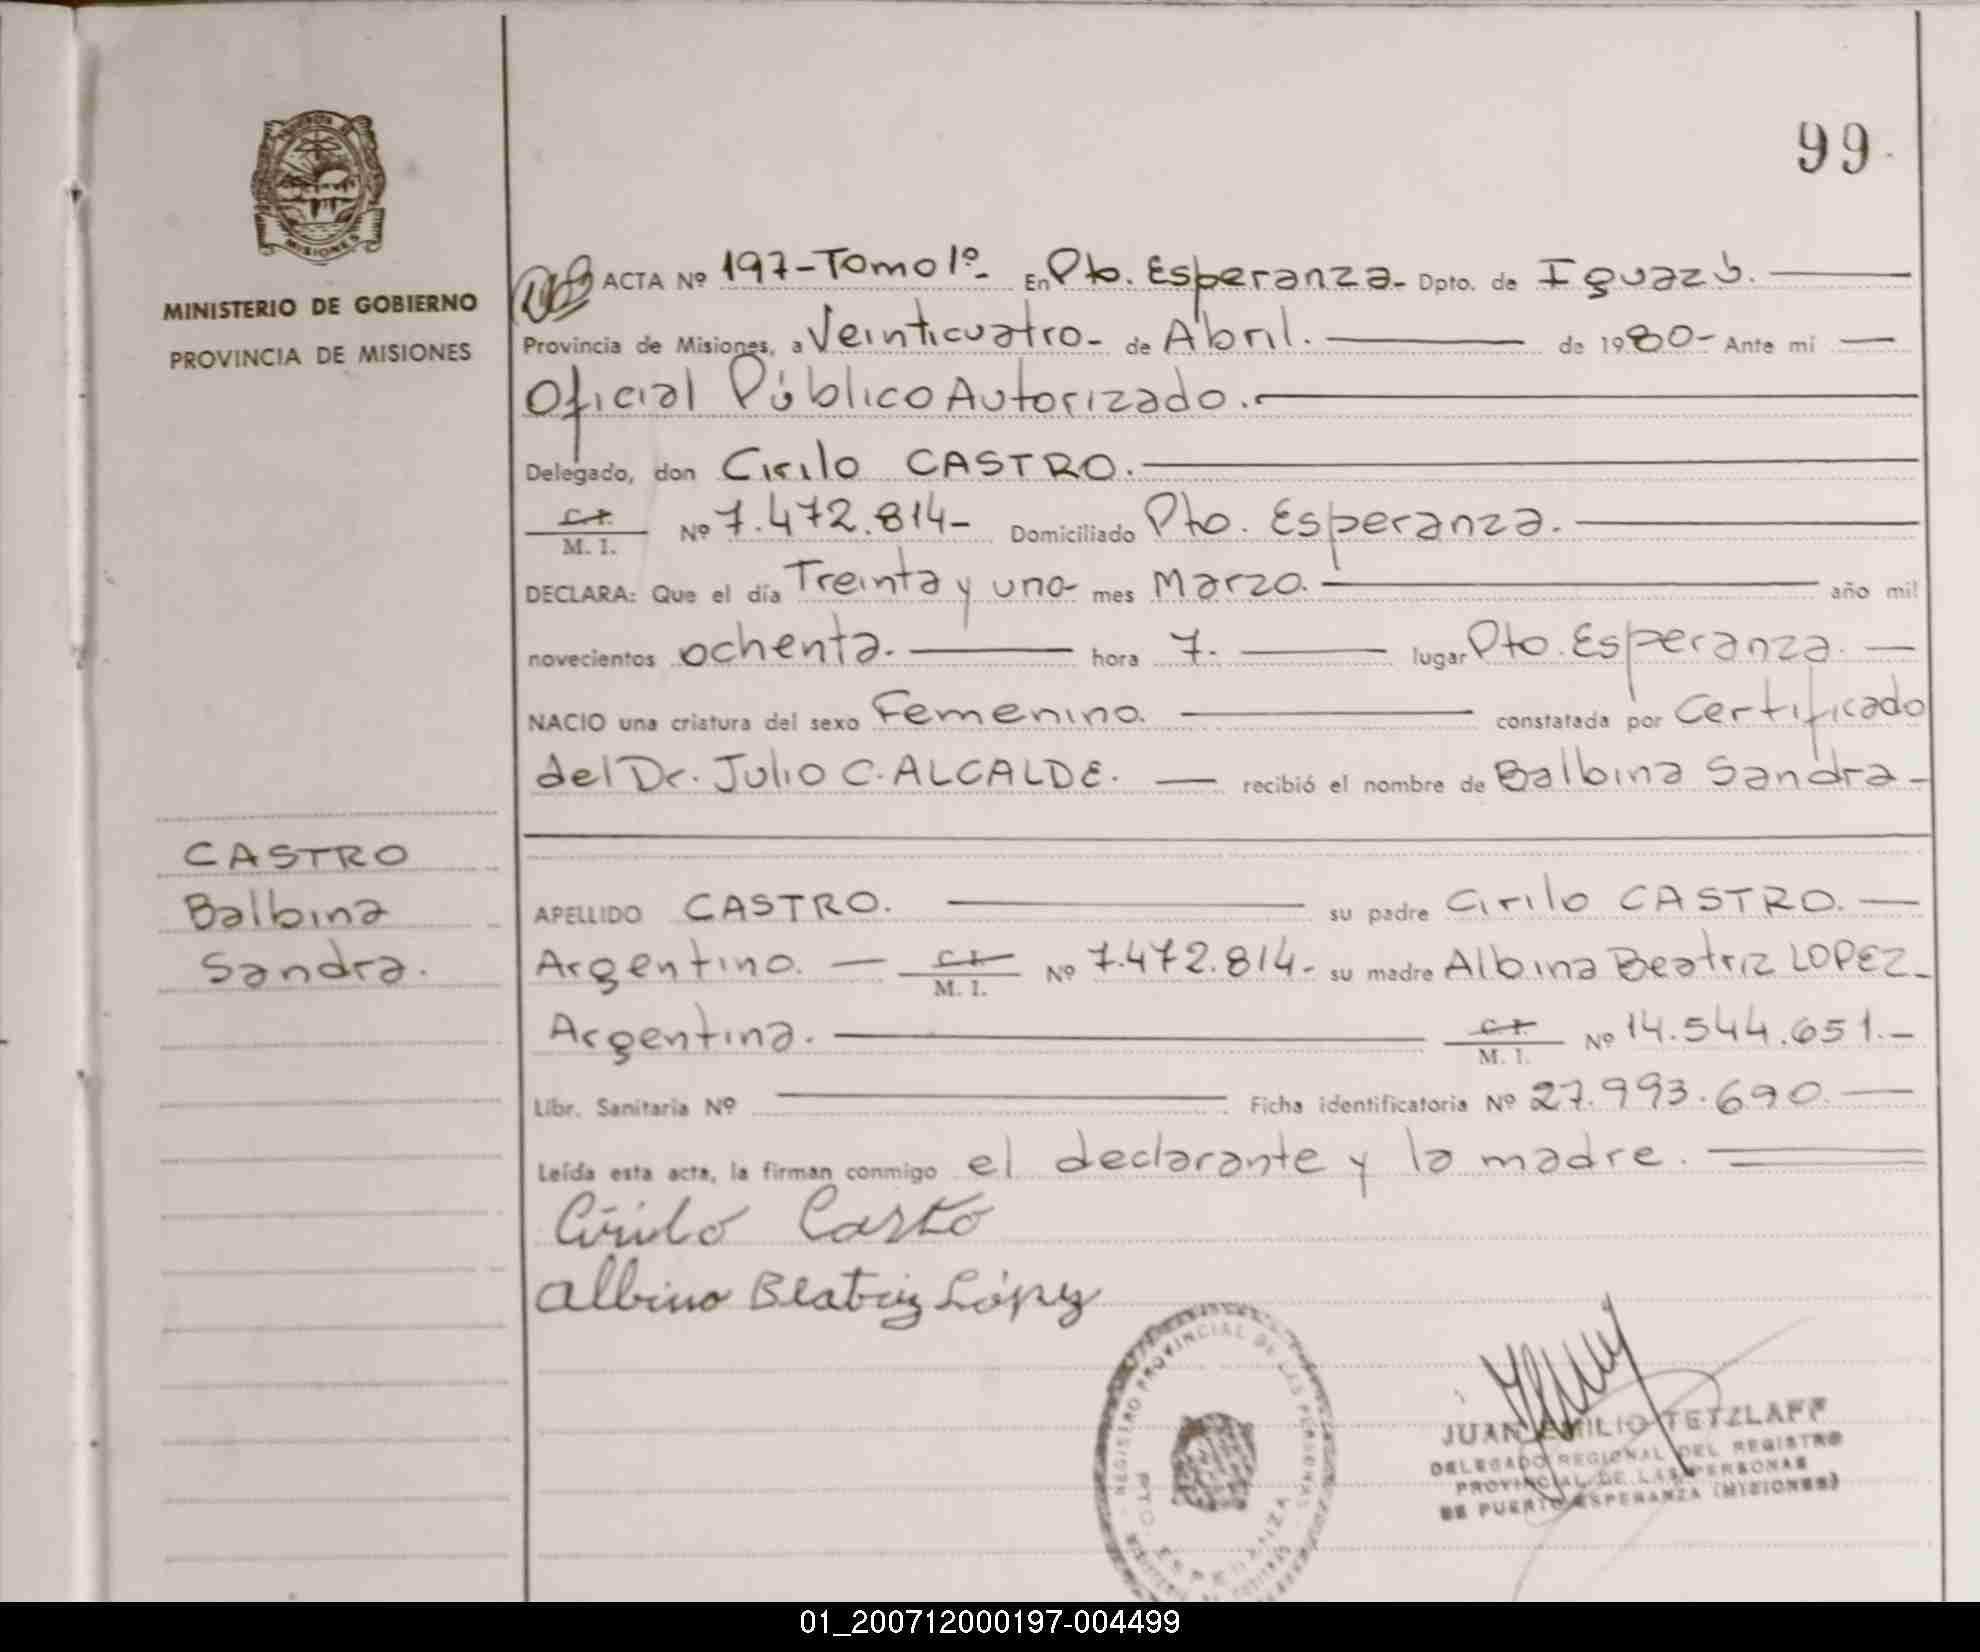 99.
MINISTERIO DE GOBIERNO
PROVINCIA DE MISIONES
ACTA Nº 197-Tomo 1º- En Pto. Esperanza- Dpto. de Iguazú.
Provincia de Misiones, a Veinticuatro- de Abril. de 1980- Ante mi
Oficial Público Autorizado.
Delegado, don Cirilo CASTRO.
C.I.
M. I. Nº 7.472.814- Domiciliado Pto. Esperanza.
DECLARA: Que el día Treinta y uno- mes Marzo. año mil
novecientos ochenta. hora 7. lugar Pto. Esperanza.
NACIO una criatura del sexo Femenino. constatada por Certificado
del Dr. Julio C. ALCALDE. recibió el nombre de Balbina Sandra-
CASTRO
Balbina
Sandra.
APELLIDO CASTRO. su padre Cirilo CASTRO.
Argentino. C.I.
M. I. Nº 7.472.814- su madre Albina Beatriz LOPEZ-
Argentina. C.I.
M. I. Nº 14.544.651.-
Libr. Sanitaria Nº Ficha identificatoria Nº 27.993.690.
Leída esta acta, la firman conmigo el declarante y la madre.
Cirilo Castro
Albina Beatriz López
REGISTRO PROVINCIAL DE LAS PERSONAS
PTO. ESPERANZA
JUAN EMILIO TETZLAFF
DELEGADO REGIONAL DEL REGISTRO
PROVINCIAL DE LAS PERSONAS
DE PUERTO ESPERANZA (MISIONES)
01_200712000197-004499